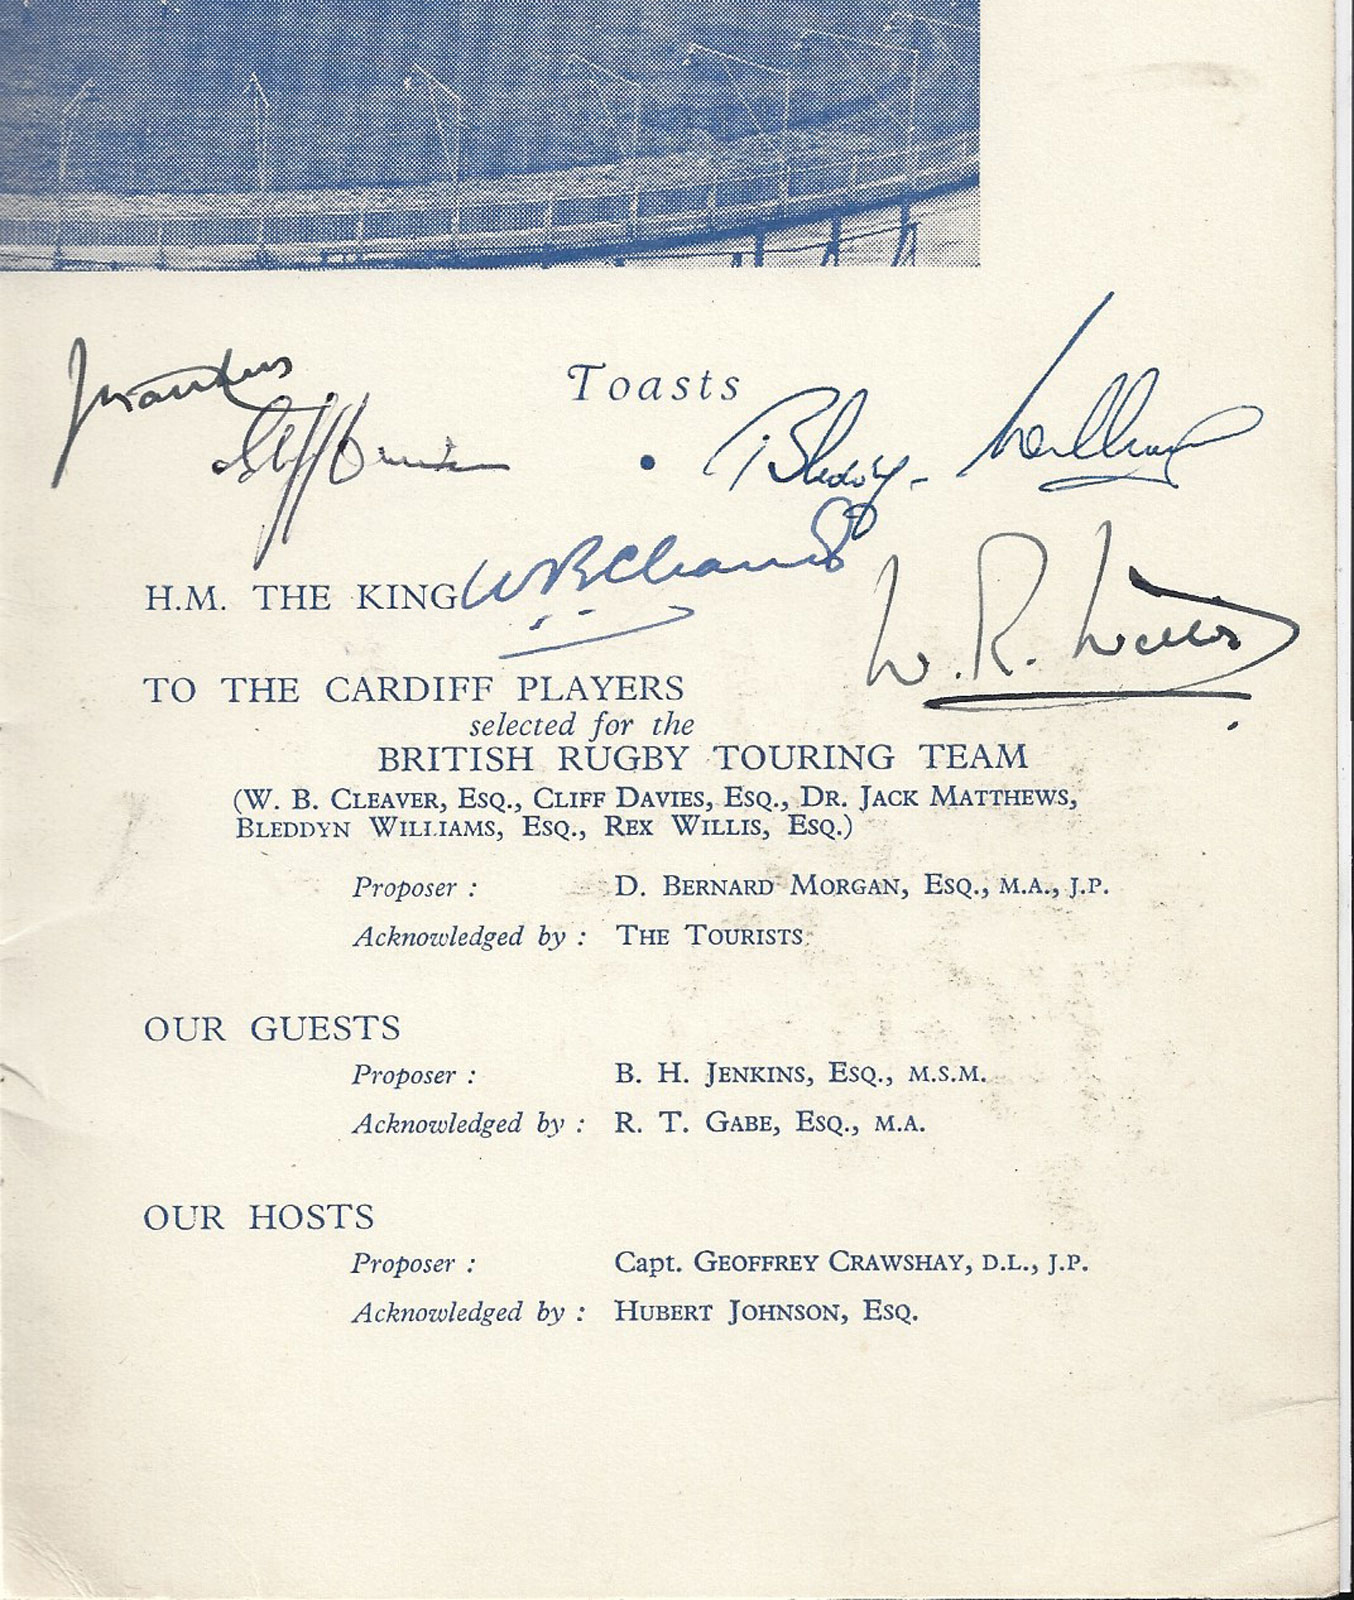 Toasts
Bleddyn Williams
H.M. THE KING
W B Cleaver
W. R. Willis
TO THE CARDIFF PLAYERS
selected for the
BRITISH RUGBY TOURING TEAM
(W. B. CLEAVER, ESQ., CLIFF DAVIES, ESQ., DR. JACK MATTHEWS,
BLEDDYN WILLIAMS, ESQ., REX WILLIS, ESQ.)
Proposer : D. BERNARD MORGAN, ESQ., M.A., J.P.
Acknowledged by : THE TOURISTS
OUR GUESTS
Proposer : B. H. JENKINS, ESQ., M.S.M.
Acknowledged by : R. T. GABE, ESQ., M.A.
OUR HOSTS
Proposer : Capt. GEOFFREY CRAWSHAY, D.L., J.P.
Acknowledged by : HUBERT JOHNSON, ESQ.